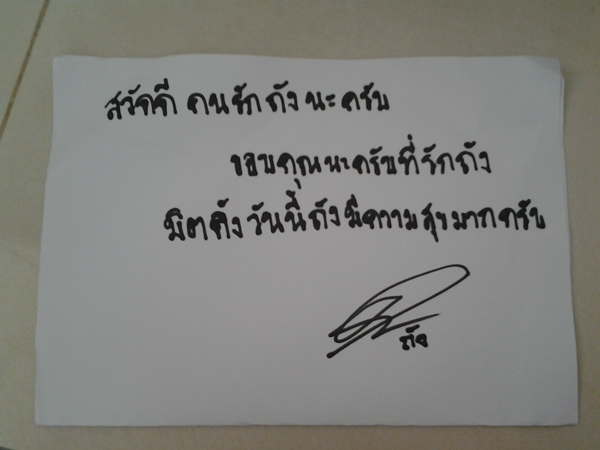 สวัดดี คนรักถังนะครับ
ขอบคุณนะครับที่รักถัง
วันนี้ถังมีความสุขมากครับ
ถัง